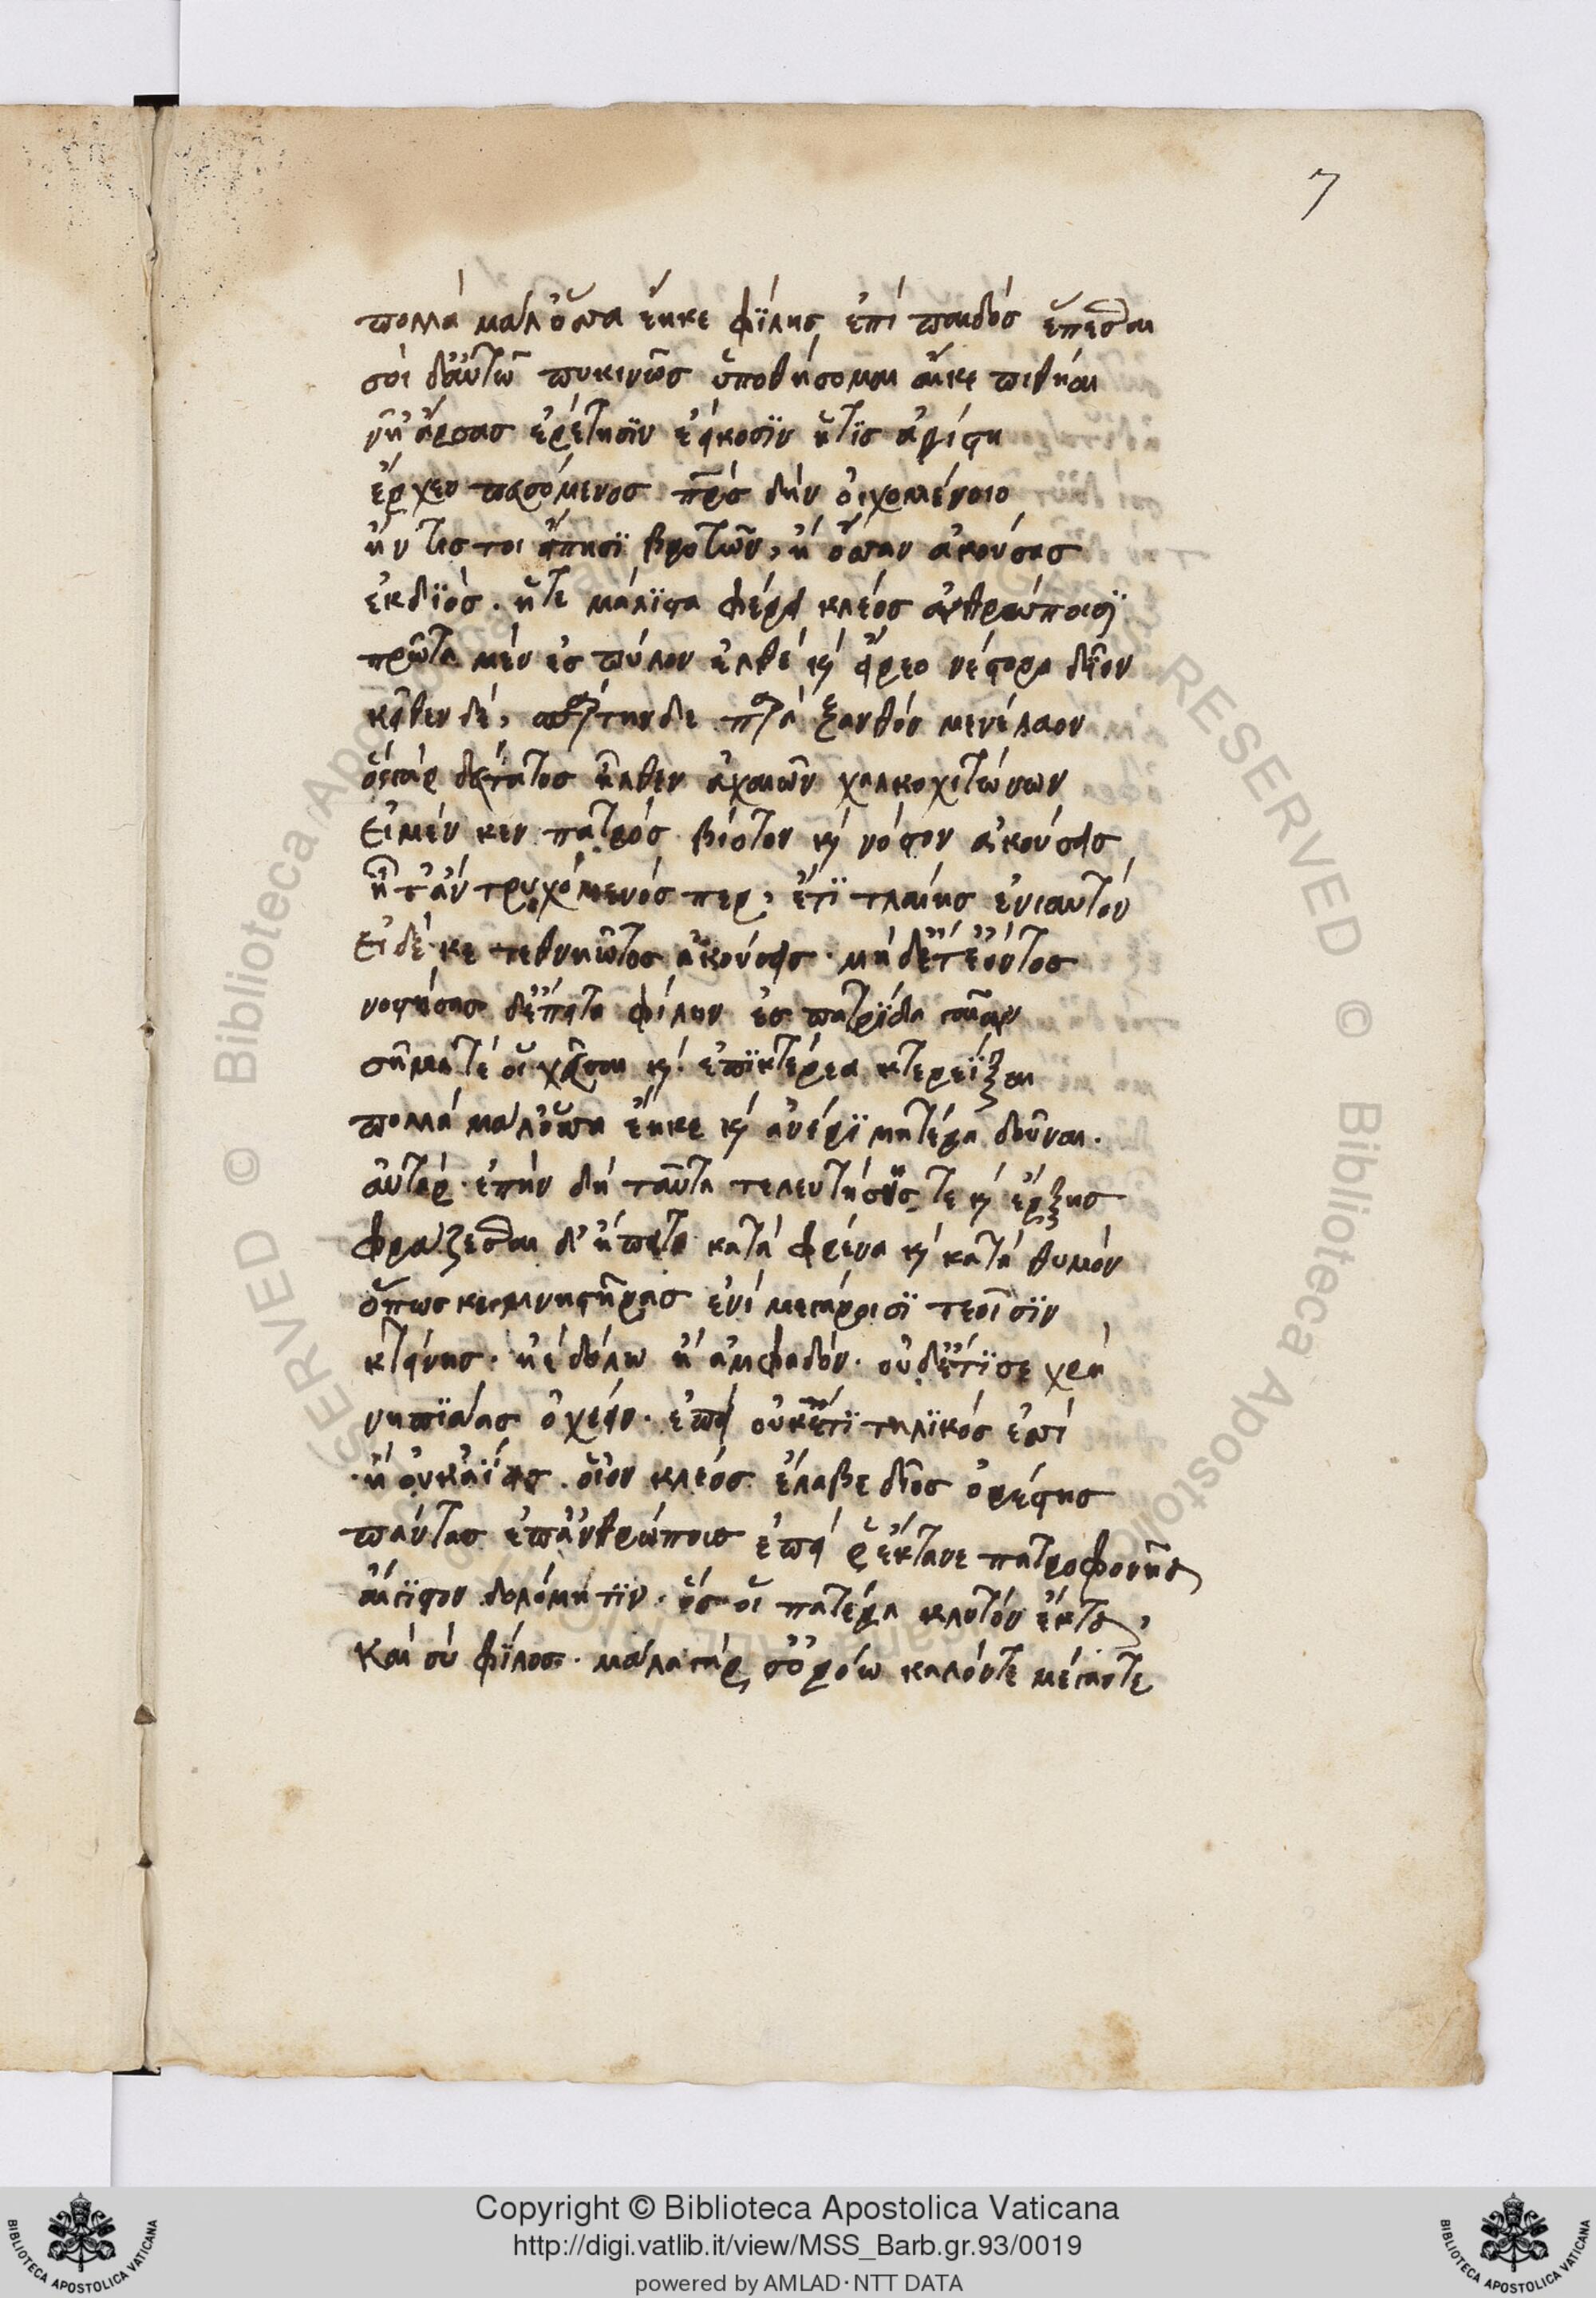 7
πολλά μάλ' ὅσσα ἔηκε φΐλης ἐπί παιδός ἕπεσθαι
σοί δ' αὐτῶ πυκινῶς ὑποθήσομαι αἴκε πίθηαι
νῆ' ἄρσας ἐρέτησϊν ἐείκοσϊν ἥτϊς ἀρίστη
ἔρχεο πευσόμενος πρός δήν οἰχομένοιο
ἤν τις τοι εἴπησϊ βροτῶν, ἤ ὄσσαν ἀκούσης
ἐκ δϊός. ἥτε μάλϊστα φέρει κλέος ἀνθρώποισϊ
πρῶτα μέν ἐς πύλον ἐλθέ καί εἴρεο νέστορα δῖον
κεῖθεν δέ, σπάρτηνδε παρά ξανθόν μενέλαον
ὅς γάρ δεύτατος ἦλθεν ἀχαιῶν χαλκοχιτώνων
εἰ μέν κεν πατρός βίοτον καί νόστον ἀκούσεις
ἦ τ' ἄν τρυχόμενός περ, ἔτϊ τλαίης ἐνιαυτόν
εἰ δέ κε τεθνηῶτος ἀκούσεις. μή δ' ἔτ' ἐόντος
νοστήσας δ' ἔπειτα φίλην ἐς πατρΐδα γαῖαν
σῆμα τέ οἵ χεῦσαι καί ἐπϊκτέρεα κτερεΐξαι
πολλά μάλ' ὅσσα ἔηκε καί ἀνέρϊ μητέρα δοῦναι.
αὐτάρ ἐπήν δή ταῦτα τελευτήσης τε καί ἔρξης
φράζεσθαι δ' ἤπειτα κατά φρένα καί κατά θυμόν
ὅππως κε μνηστῆρας ἐνί μεγάροισϊ τεοῖσϊν
κτείνης. ἠέ δόλω ἤ ἀμφαδόν. οὐδ' ἔτϊ σε χρή
νηπϊάας ὀχέειν. ἐπεί οὐκ ἔτϊ τηλϊκός ἐσσί
ἤ οὐκ ἀΐεις. οἷον κλέος ἔλαβε δῖος ὀρέστης
πάντας ἐπ' ἀνθρώπους ἐπεί ῥ' ἔκτανε πατροφονῆα
αἴγϊσθον δολόμητϊν. ὅς οἵ πατέρα κλυτόν ἔκτα,
καί σύ φΐλος. μάλα γάρ σ' ὁρόω καλόν τε μέγαν τε
Copyright © Biblioteca Apostolica Vaticana
http://digi.vatlib.it/view/MSS_Barb.gr.93/0019
powered by AMLAD·NTT DATA